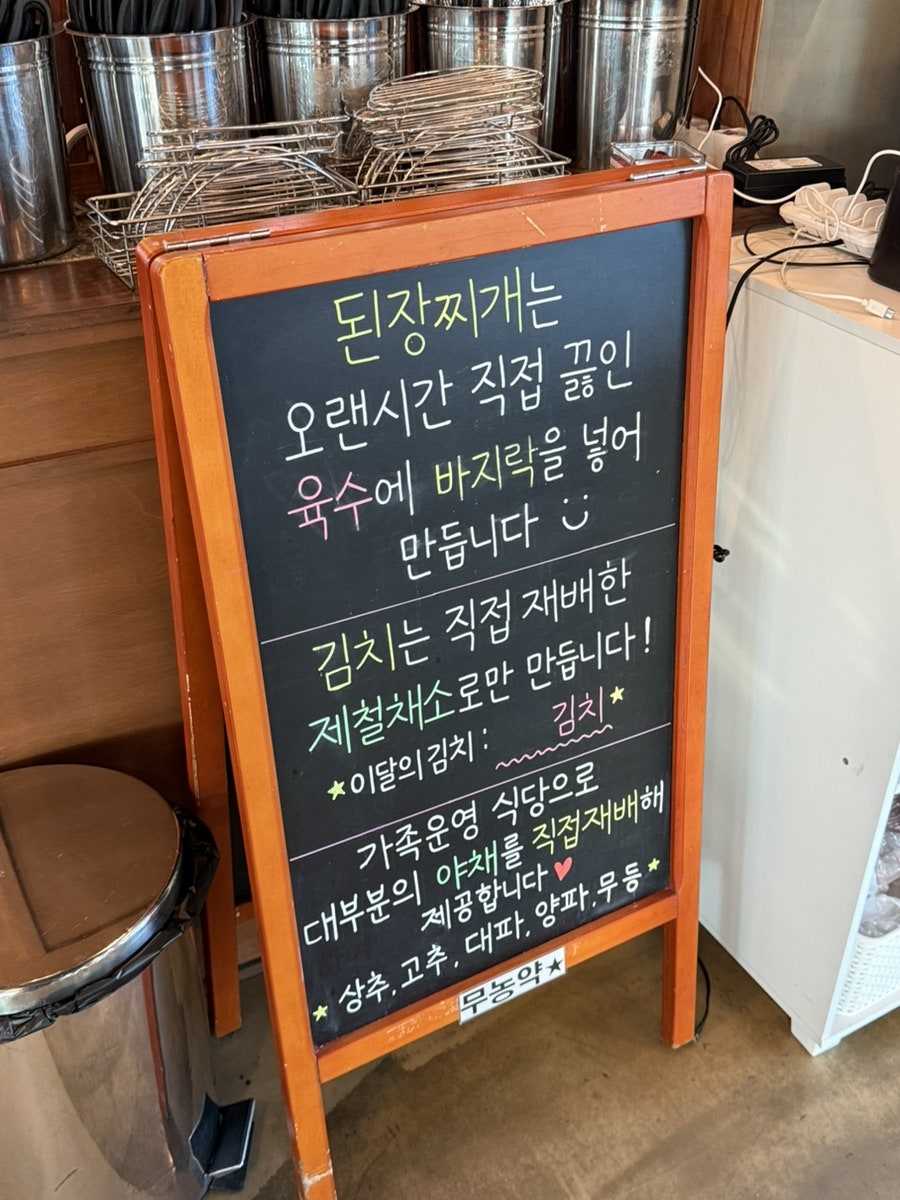 된장찌개는
오랜시간 직접 끓인
육수에 바지락을 넣어
만듭니다
김치는 직접 재배한
제철채소로만 만듭니다!
★이달의 김치 : 김치★
가족운영 식당으로
대부분의 야채를 직접재배해
제공합니다♥
★상추, 고추, 대파, 양파, 무 등★
무농약★